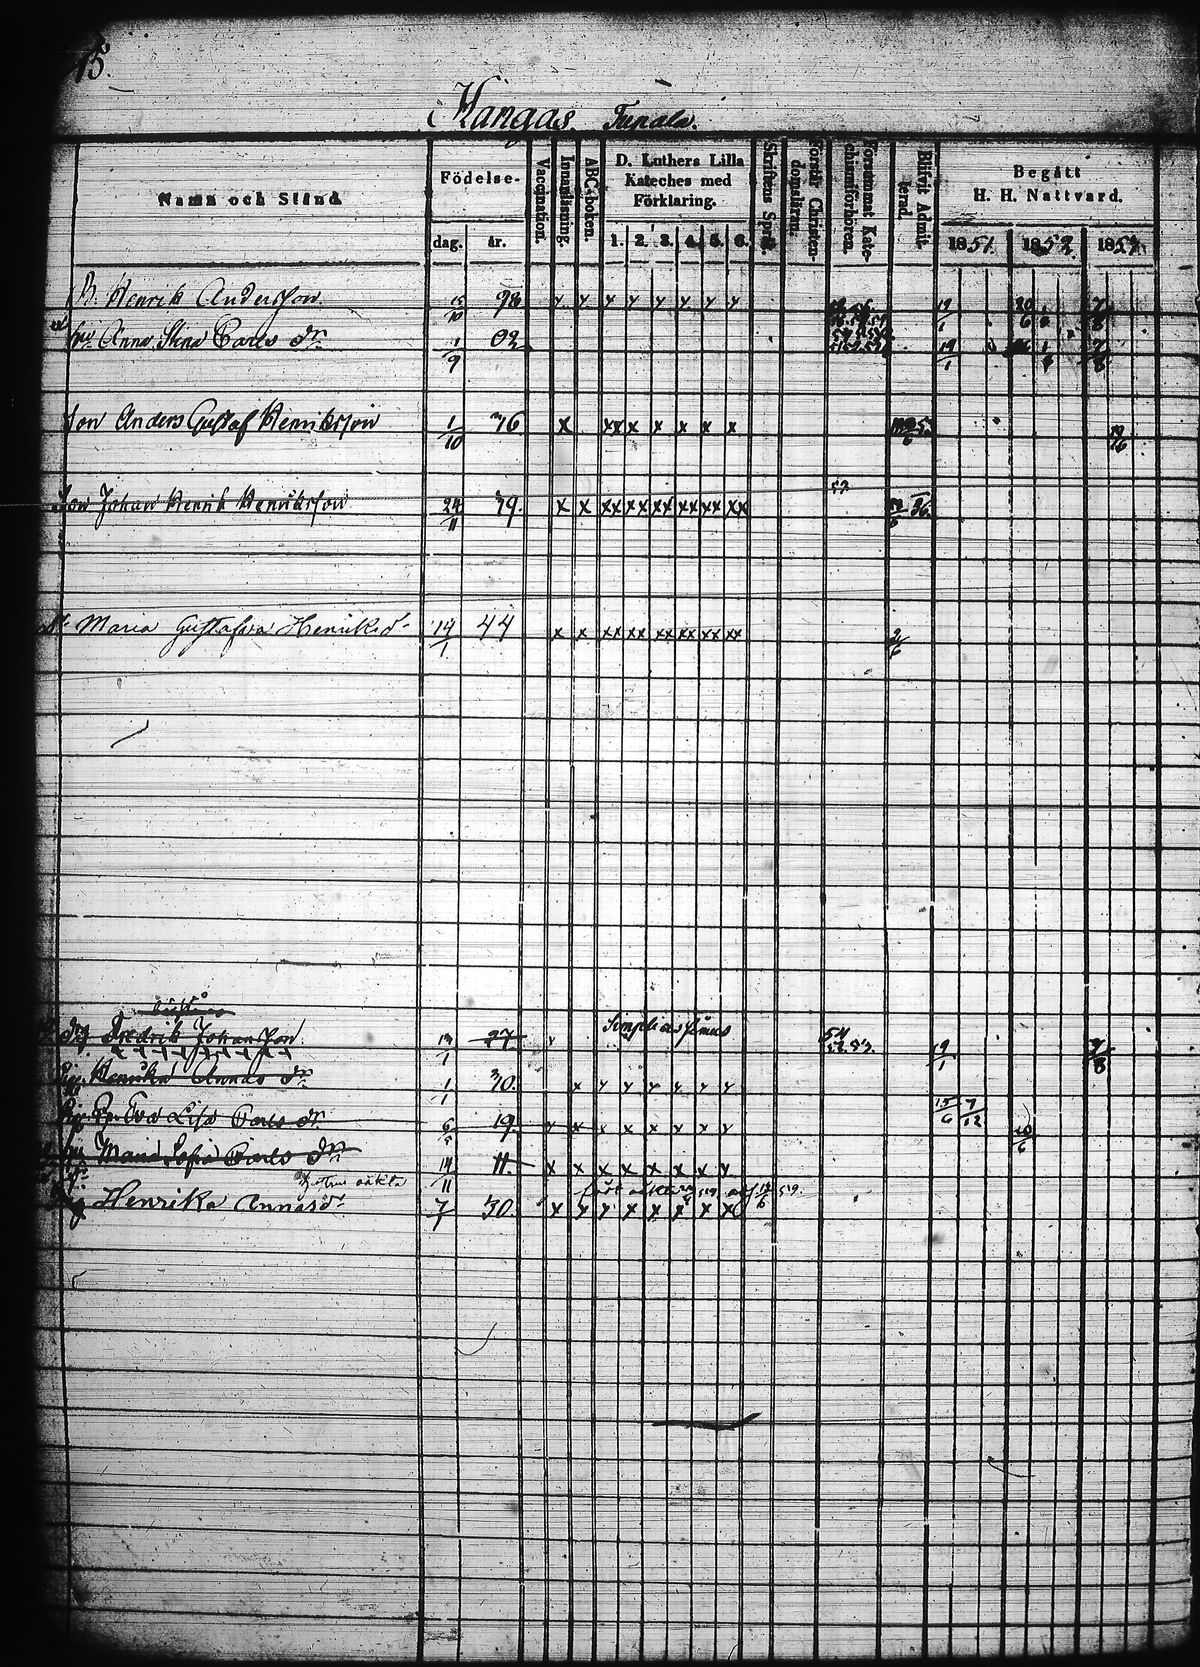 15.
Kangas. Tupala.
Namn och Stånd.
Födelse-
dag. år.
Vaccination.
Innanläsning.
ABC-boken.
D. Luthers Lilla
Kateches med
Förklaring.
1. 2. 3. 4. 5. 6.
Skriftens Språk.
Förstår Christen-
domsläran.
Försummat Kate-
chismiförhören.
Blifvit Admit-
terad.
Begått
H. H. Nattvard.
1851. 1852. 1853.
B. Henrik Andersson 15/10 98 x x x x x x x x 19/1 7/8
hu. Anna Stina Carls dr. 1/9 02 19/1 7/8
Son Anders Gustaf Henriksson 1/10 36 x xx x x x x x
Son Johan Henrik Henriksson 24/11 39. x x xx xx xx xx xx xx
Maria Gustafva Henriksd. 14/1 44 x x xx xx xx xx xx xx 2/6
Drg Fredrik Johansson 27 x Simplicissimus 54 19/1 7/8
Pig. Henrika Annas dr. 1/1 30. x x x x x x x
Pig. Eva Lisa Carls dr. 6/5 19 x x x x x x x x 15/6 7/12
Maria Sofia Carls dr. 14/11 11. x x x x x x x x
Henrika Annasdr 7/1 30. x x x x x x x x